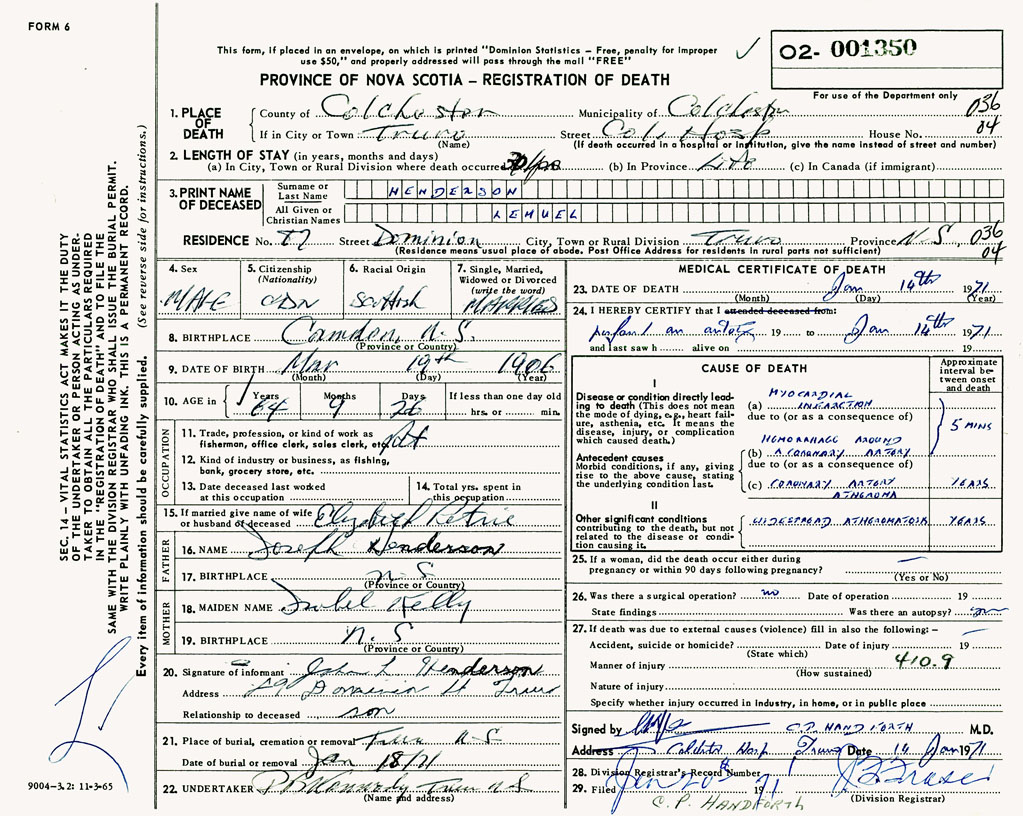 FORM 6
This form, if placed in an envelope, on which is printed "Dominion Statistics – Free, penalty for improper
use $50," and properly addressed will pass through the mail "FREE"
O2- 001350
PROVINCE OF NOVA SCOTIA – REGISTRATION OF DEATH
For use of the Department only
1. PLACE OF DEATH
County of Colchester Municipality of Colchester 036
If in City or Town Truro Street Col. Hosp House No. 04
(Name) (If death occurred in a hospital or institution, give the name instead of street and number)
2. LENGTH OF STAY (in years, months and days)
(a) In City, Town or Rural Division where death occurred (b) In Province Life (c) In Canada (if immigrant)
3. PRINT NAME OF DECEASED
Surname or Last Name HENDERSON
All Given or Christian Names LEMUEL
RESIDENCE No. Street Dominion City, Town or Rural Division Truro Province N-S, 036
(Residence means usual place of abode. Post Office Address for residents in rural parts not sufficient) 04
4. Sex MALE
5. Citizenship (Nationality) CDN
6. Racial Origin Scottish
7. Single, Married, Widowed or Divorced (write the word) MARRIED
8. BIRTHPLACE Camden, N-S,
(Province or Country)
9. DATE OF BIRTH Mar 19th 1906
(Month) (Day) (Year)
10. AGE in Years 64 Months 9 Days 26 If less than one day old
hrs. or min.
OCCUPATION
11. Trade, profession, or kind of work as
fisherman, office clerk, sales clerk, etc.
12. Kind of industry or business, as fishing,
bank, grocery store, etc.
13. Date deceased last worked at this occupation
14. Total yrs. spent in this occupation
15. If married give name of wife
or husband of deceased Elizabeth Petrie
FATHER
16. NAME Joseph Henderson
17. BIRTHPLACE N-S
(Province or Country)
MOTHER
18. MAIDEN NAME Isabel Kelly
19. BIRTHPLACE N. S
(Province or Country)
20. Signature of informant John L Henderson
Address Dominion St Truro
Relationship to deceased son
21. Place of burial, cremation or removal Truro N-S
Date of burial or removal Jan 18/71
22. UNDERTAKER Truro N S
(Name and address)
MEDICAL CERTIFICATE OF DEATH
23. DATE OF DEATH Jan 14th 1971
(Month) (Day) (Year)
24. I HEREBY CERTIFY that I attended deceased from:
perform an autopsy 19 to Jan 14th 1971
and last saw h alive on 19
CAUSE OF DEATH
Approximate interval between onset and death
I
Disease or condition directly leading to death (This does not mean the mode of dying, e.g., heart failure, asthenia, etc. It means the disease, injury, or complication which caused death.)
(a) MYOCARDIAL INFARCTION
due to (or as a consequence of)
5 MINS
Antecedent causes
Morbid conditions, if any, giving rise to the above cause, stating the underlying condition last.
(b) HEMORRHAGE AROUND A CORONARY ARTERY
due to (or as a consequence of)
(c) CORONARY ARTERY ATHEROMA YEARS
II
Other significant conditions
contributing to the death, but not related to the disease or condition causing it.
WIDESPREAD ATHEROMATOSIS YEARS
25. If a woman, did the death occur either during
pregnancy or within 90 days following pregnancy? —
(Yes or No)
26. Was there a surgical operation? no Date of operation 19
State findings Was there an autopsy? yes
27. If death was due to external causes (violence) fill in also the following: –
Accident, suicide or homicide? Date of injury 19
(State which)
Manner of injury 410.9
(How sustained)
Nature of injury
Specify whether injury occurred in industry, in home, or in public place
Signed by C.P. HANDFORTH M.D.
Address Hosp Truro Date 14 Jan 1971
28. Division Registrar's Record Number
29. Filed Jan 20 1971
(Division Registrar)
C.P. HANDFORTH
SEC. 14 – VITAL STATISTICS ACT MAKES IT THE DUTY
OF THE UNDERTAKER OR PERSON ACTING AS UNDER-
TAKER TO OBTAIN ALL THE PARTICULARS REQUIRED
IN THE "REGISTRATION OF DEATH" AND TO FILE THE
SAME WITH THE DIVISION REGISTRAR WHO SHALL ISSUE THE BURIAL PERMIT.
WRITE PLAINLY WITH UNFADING INK. THIS IS A PERMANENT RECORD.
Every item of information should be carefully supplied. (See reverse side for instructions.)
9004-3.2: 11-3-65